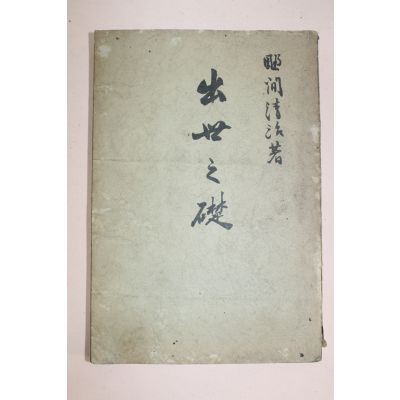 野間清治著
出世之礎